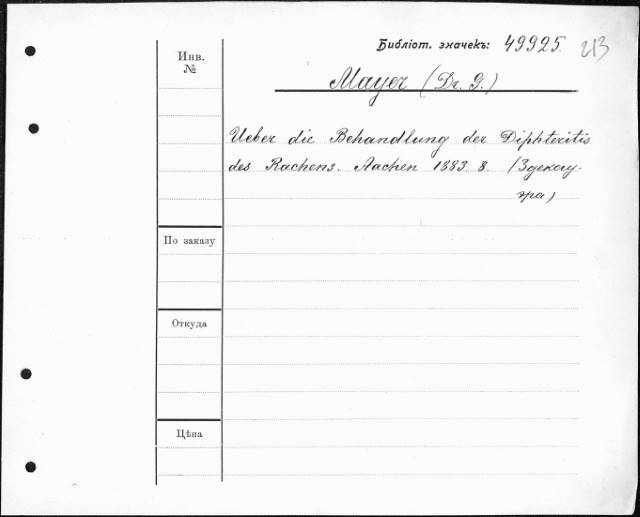 Библіот. значекъ: 49925. 213
Инв.
№
Mayer (Dr. G.)
Ueber die Behandlung der Diphteritis
des Rachens. Aachen 1883. 8. (Здекау-
эра)
По заказу
Откуда
Цѣна